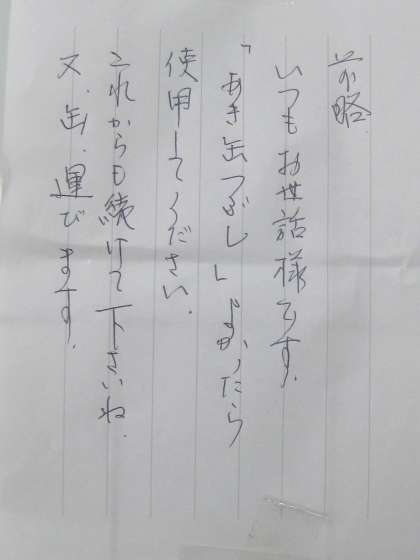 前略
いつもお世話様です.
「あき缶つぶし」よかったら
使用してください.
これからも続けて下さいね.
又、缶、運びます.